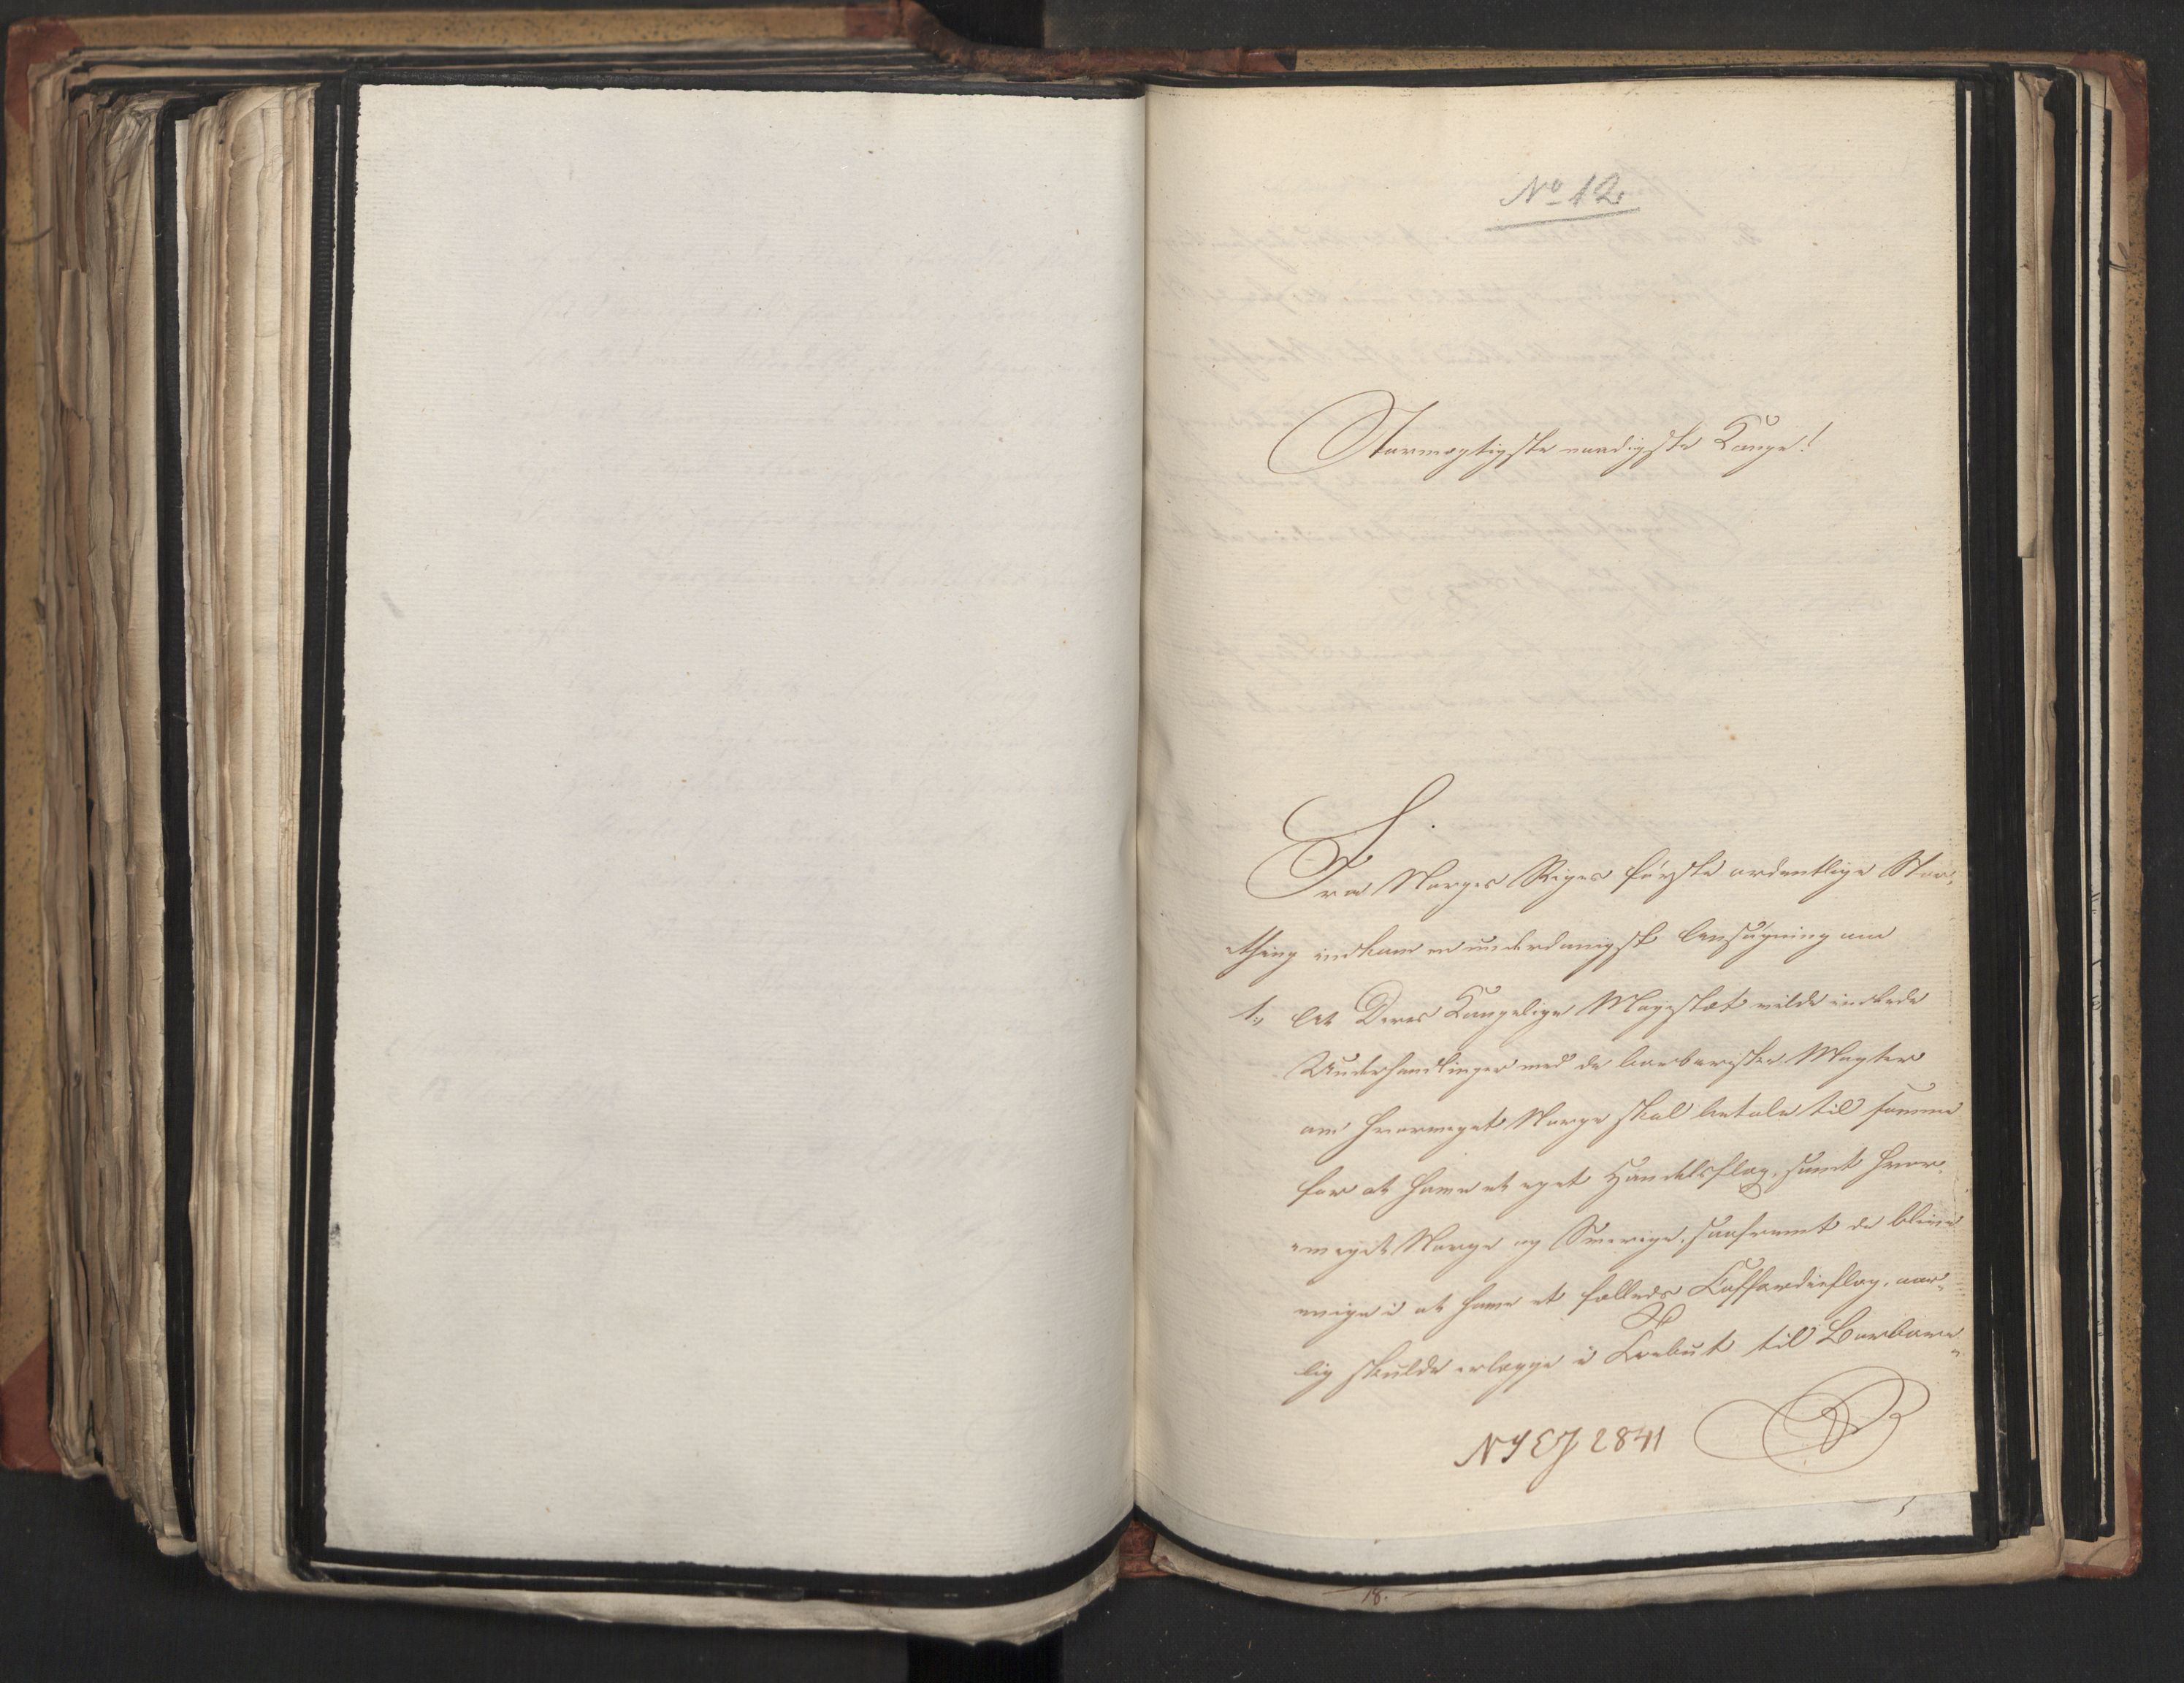 No 12.
Stormægtigste naadigste Konge!
Fra Norges Riges første ordentlige Stor-
thing indkom en underdanigst Ansøgning om
1., At Deres Kongelige Majestæt vilde indlede
Underhandlinger med de barbariske Magter
om hvormeget Norge skal betale til samme
for at have et eget Handelsflag, samt hvor-
meget Norge og Sverige, saafremt de blive
enige i at have et fælleds Coffardieflag, aar-
lig skulde erlægge i Tribut til Barbare-
NYEJ 2841
18.